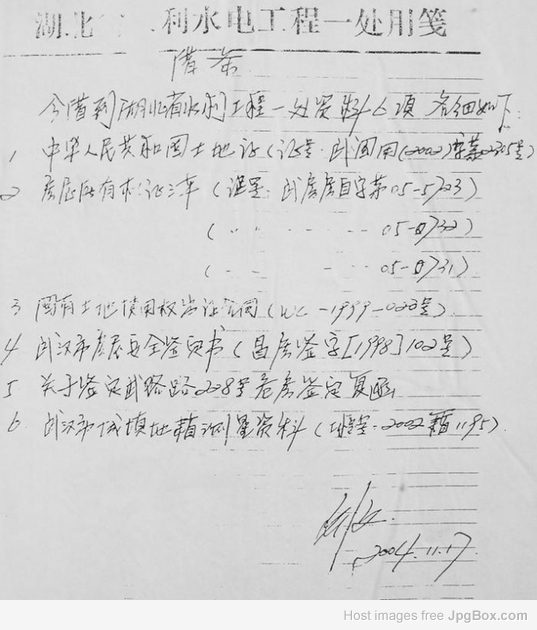 湖北 利水电工程一处用笺
借条
今借到湖北省水利工程一处资料6项 名细如下:
1 中华人民共和国土地证(证号:武国用(2002)字第235号)
2 房屋所有权证三本(证号:武房房自字第05-5723)
( " " - - - 05-8732)
( " - - - 05-8731)
3 国有土地使用权出让合同(WC-1999-023号)
4 武汉市房屋安全鉴定书(昌房鉴字[1998]102号)
5 关于鉴定武珞路228号危房鉴定复函
6 武汉市城镇地籍测量资料(2002籍1195)
2004.11.17.
Host images free JpgBox.com